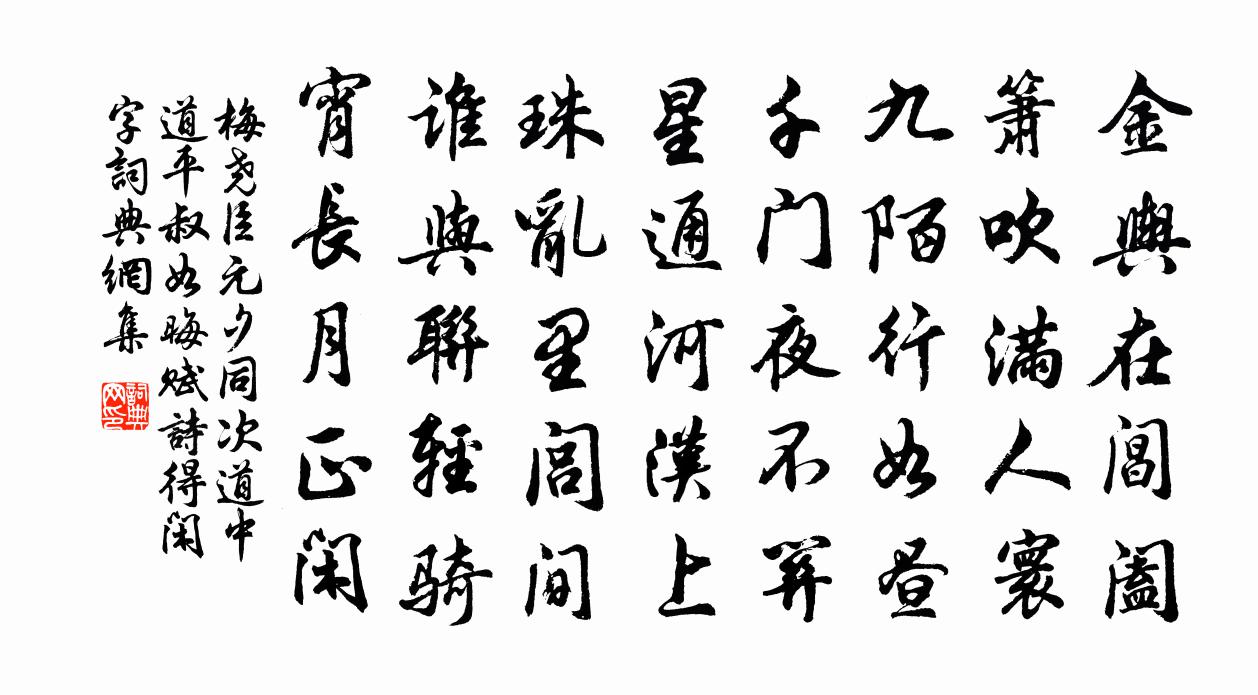 金輿在閶闔
簫吹滿人寰
九陌行如晝
千门夜不關
星通河漢上
珠亂里閭間
誰與聯輕騎
宵長月正閑
梅尧臣元夕同次道中
道平叔如晦賦詩得閑
字詞典網集
詞典网印